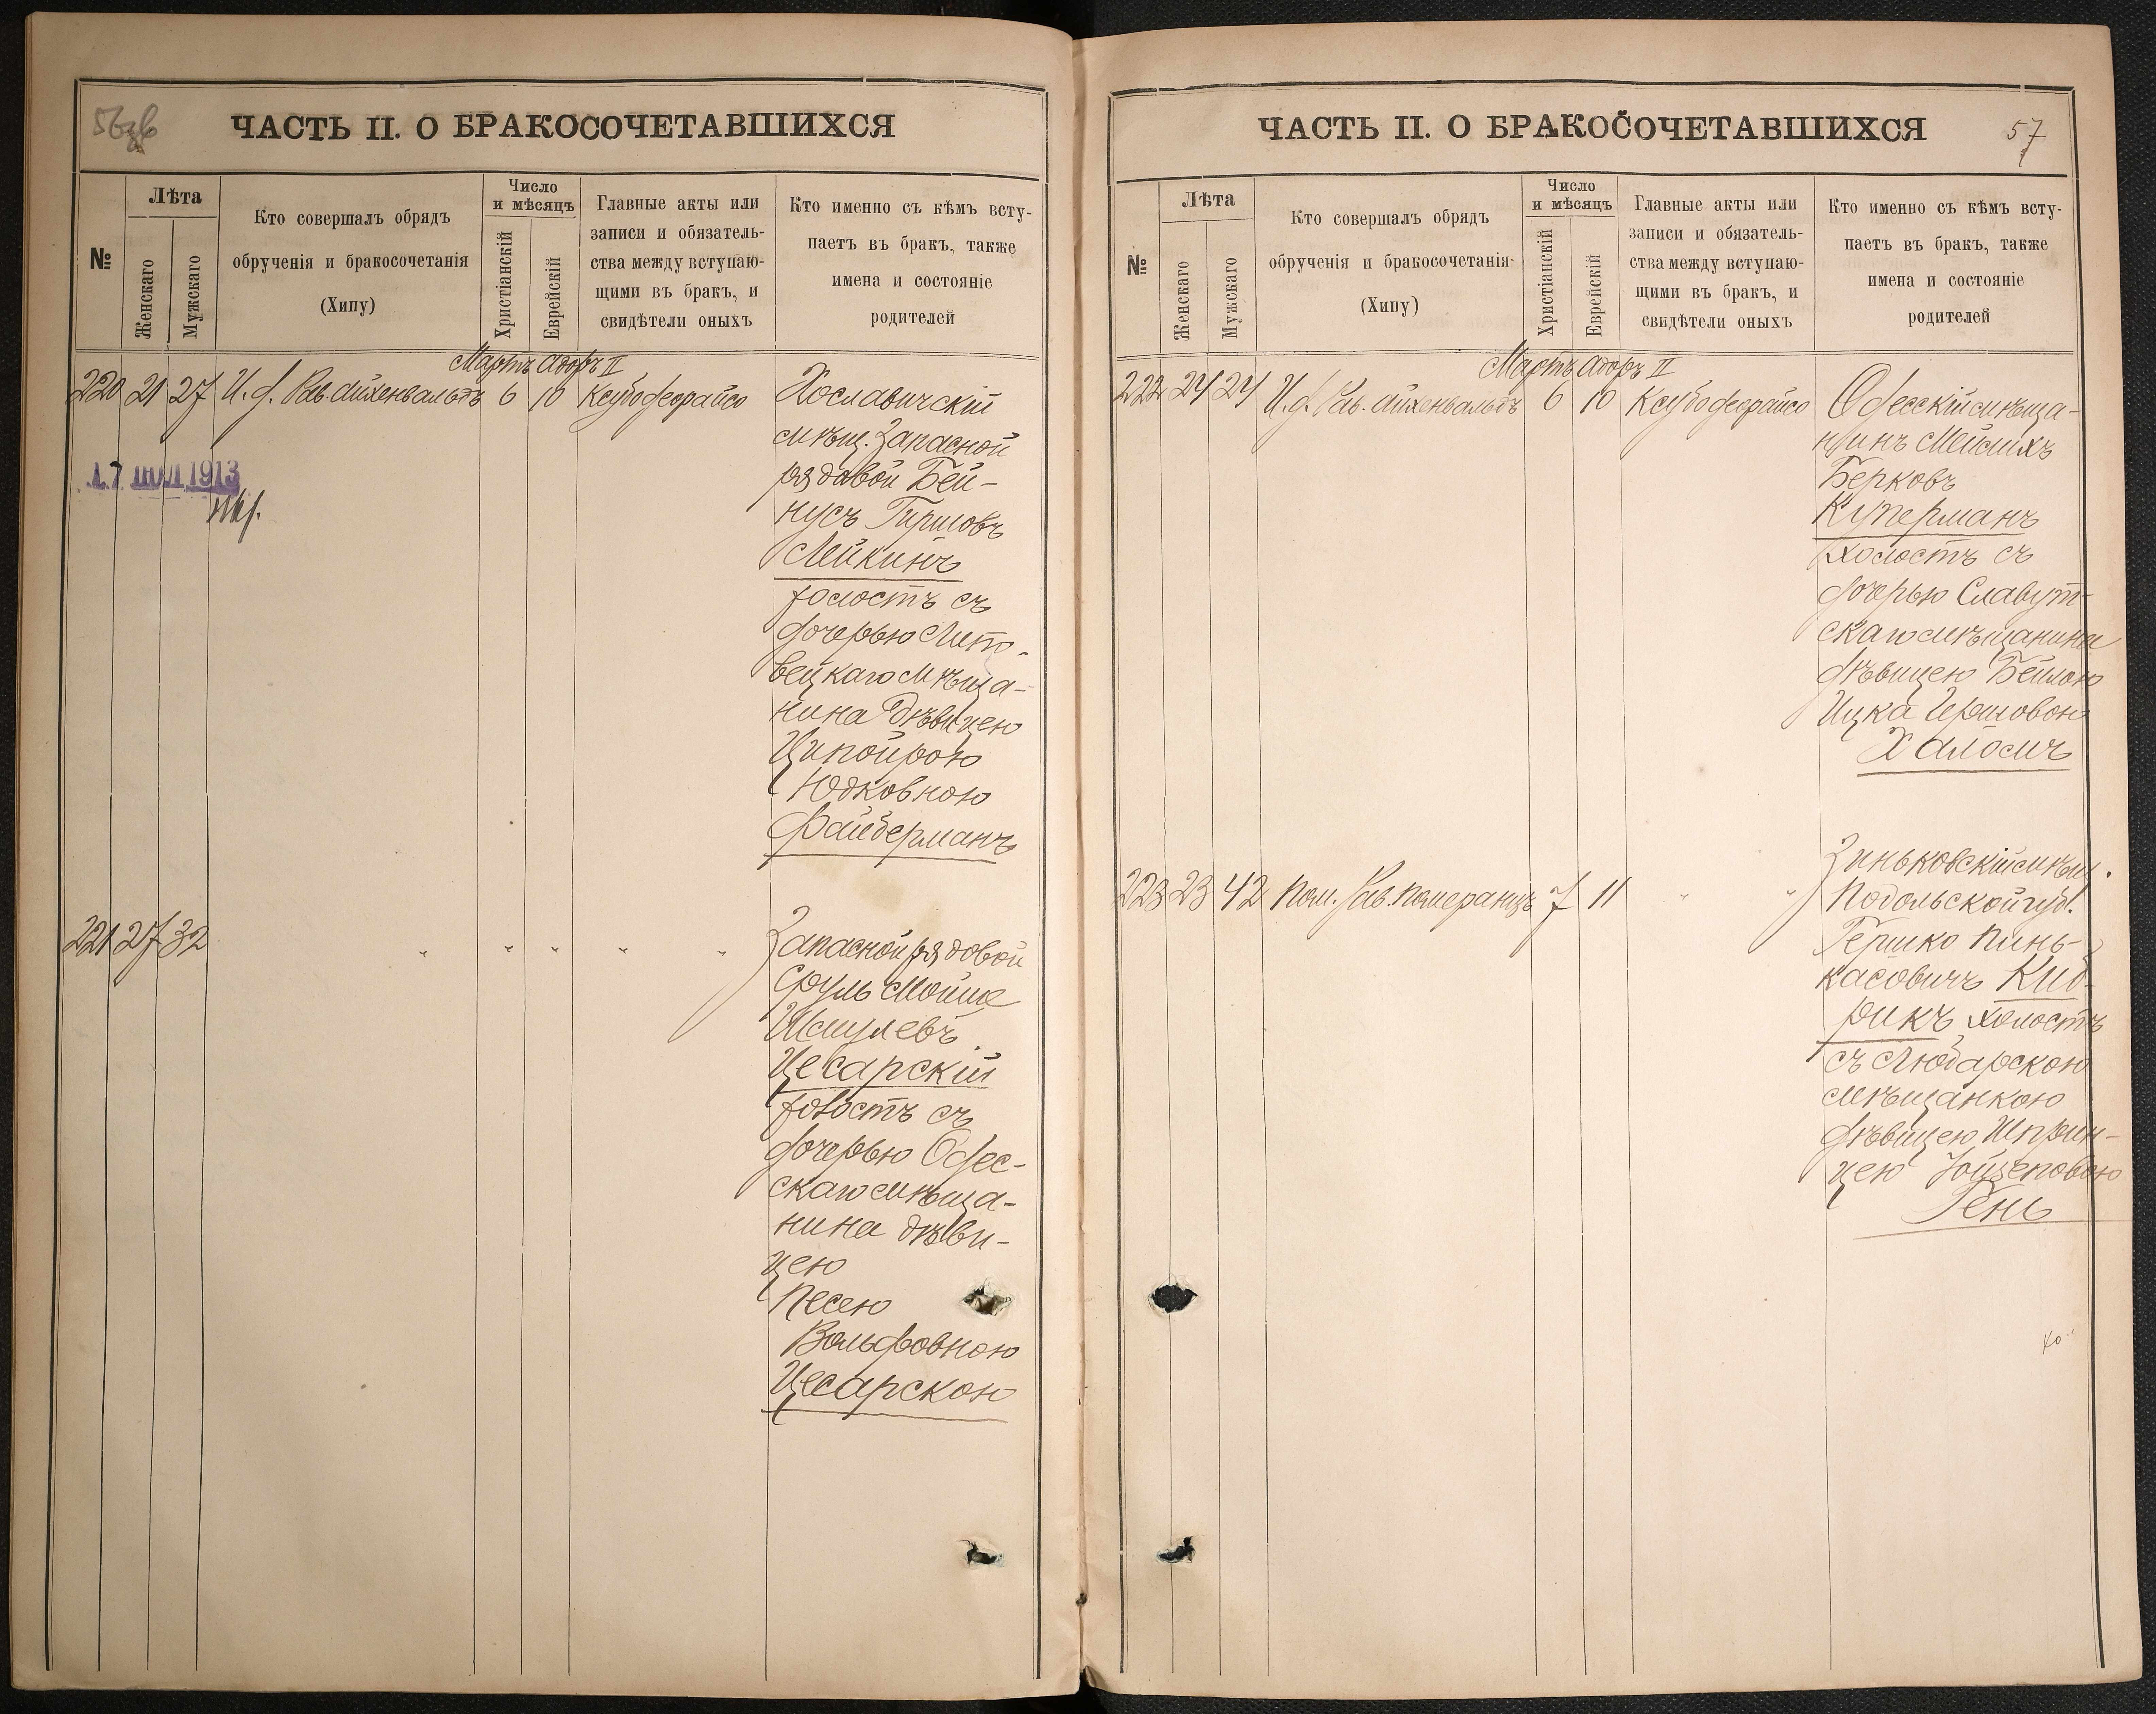 56об
ЧАСТЬ II. О БРАКОСОЧЕТАВШИХСЯ
№
Лѣта
Женскаго
Мужскаго
Кто совершалъ обрядъ
обрученія и бракосочетанія
(Хипу)
Число
и мѣсяцъ
Христіанскій
Еврейскій
Главные акты или
записи и обязатель-
ства между вступаю-
щими въ бракъ, и
свидѣтели оныхъ
Кто именно съ кѣмъ всту-
паетъ въ бракъ, также
имена и состояніе
родителей
Мартъ Адоръ II
220 21 27 И. д. Рав. Айхенвальдъ 6 10 Ксубо деорайсо
Хославичскій
мѣщ. Запасной
рядовой Бей-
нусъ Гиршовъ
Лейкинъ
холостъ съ
дочерью Липо-
вецкаго мѣща-
нина дѣвицею
Ципойрою
Юдковною
Файберманъ
17 ІЮЛ 1913
221 27 32 " " " " "
Запасной рядовой
Сруль Мойше
Шмулевъ
Цесарскій
холостъ съ
дочерью Одес-
скаго мѣща-
нина дѣви-
цею
Песею
Вольфовною
Цесарскою
ЧАСТЬ II. О БРАКОСОЧЕТАВШИХСЯ
57
№
Лѣта
Женскаго
Мужскаго
Кто совершалъ обрядъ
обрученія и бракосочетанія
(Хипу)
Число
и мѣсяцъ
Христіанскій
Еврейскій
Главные акты или
записи и обязатель-
ства между вступаю-
щими въ бракъ, и
свидѣтели оныхъ
Кто именно съ кѣмъ всту-
паетъ въ бракъ, также
имена и состояніе
родителей
Мартъ Адоръ II
222 24 24 И. д. Рав. Айхенвальдъ 6 10 Ксубо деорайсо
Одесскій мѣща-
нинъ Мейлихъ
Берковъ
Куперманъ
холостъ съ
дочерью Славут-
скаго мѣщанина
дѣвицею Бейлою
Ицка Гершовою
Халоимъ
223 23 42 Пом. Рав. Померанцъ 7 11 " "
Зиньковскій мѣщ.
Подольской губ.
Гершко Пинь-
касовичъ Кид-
рикъ холостъ
съ Любарскою
мѣщанкою
дѣвицею Шприн-
цею Іойзеповою
Гень